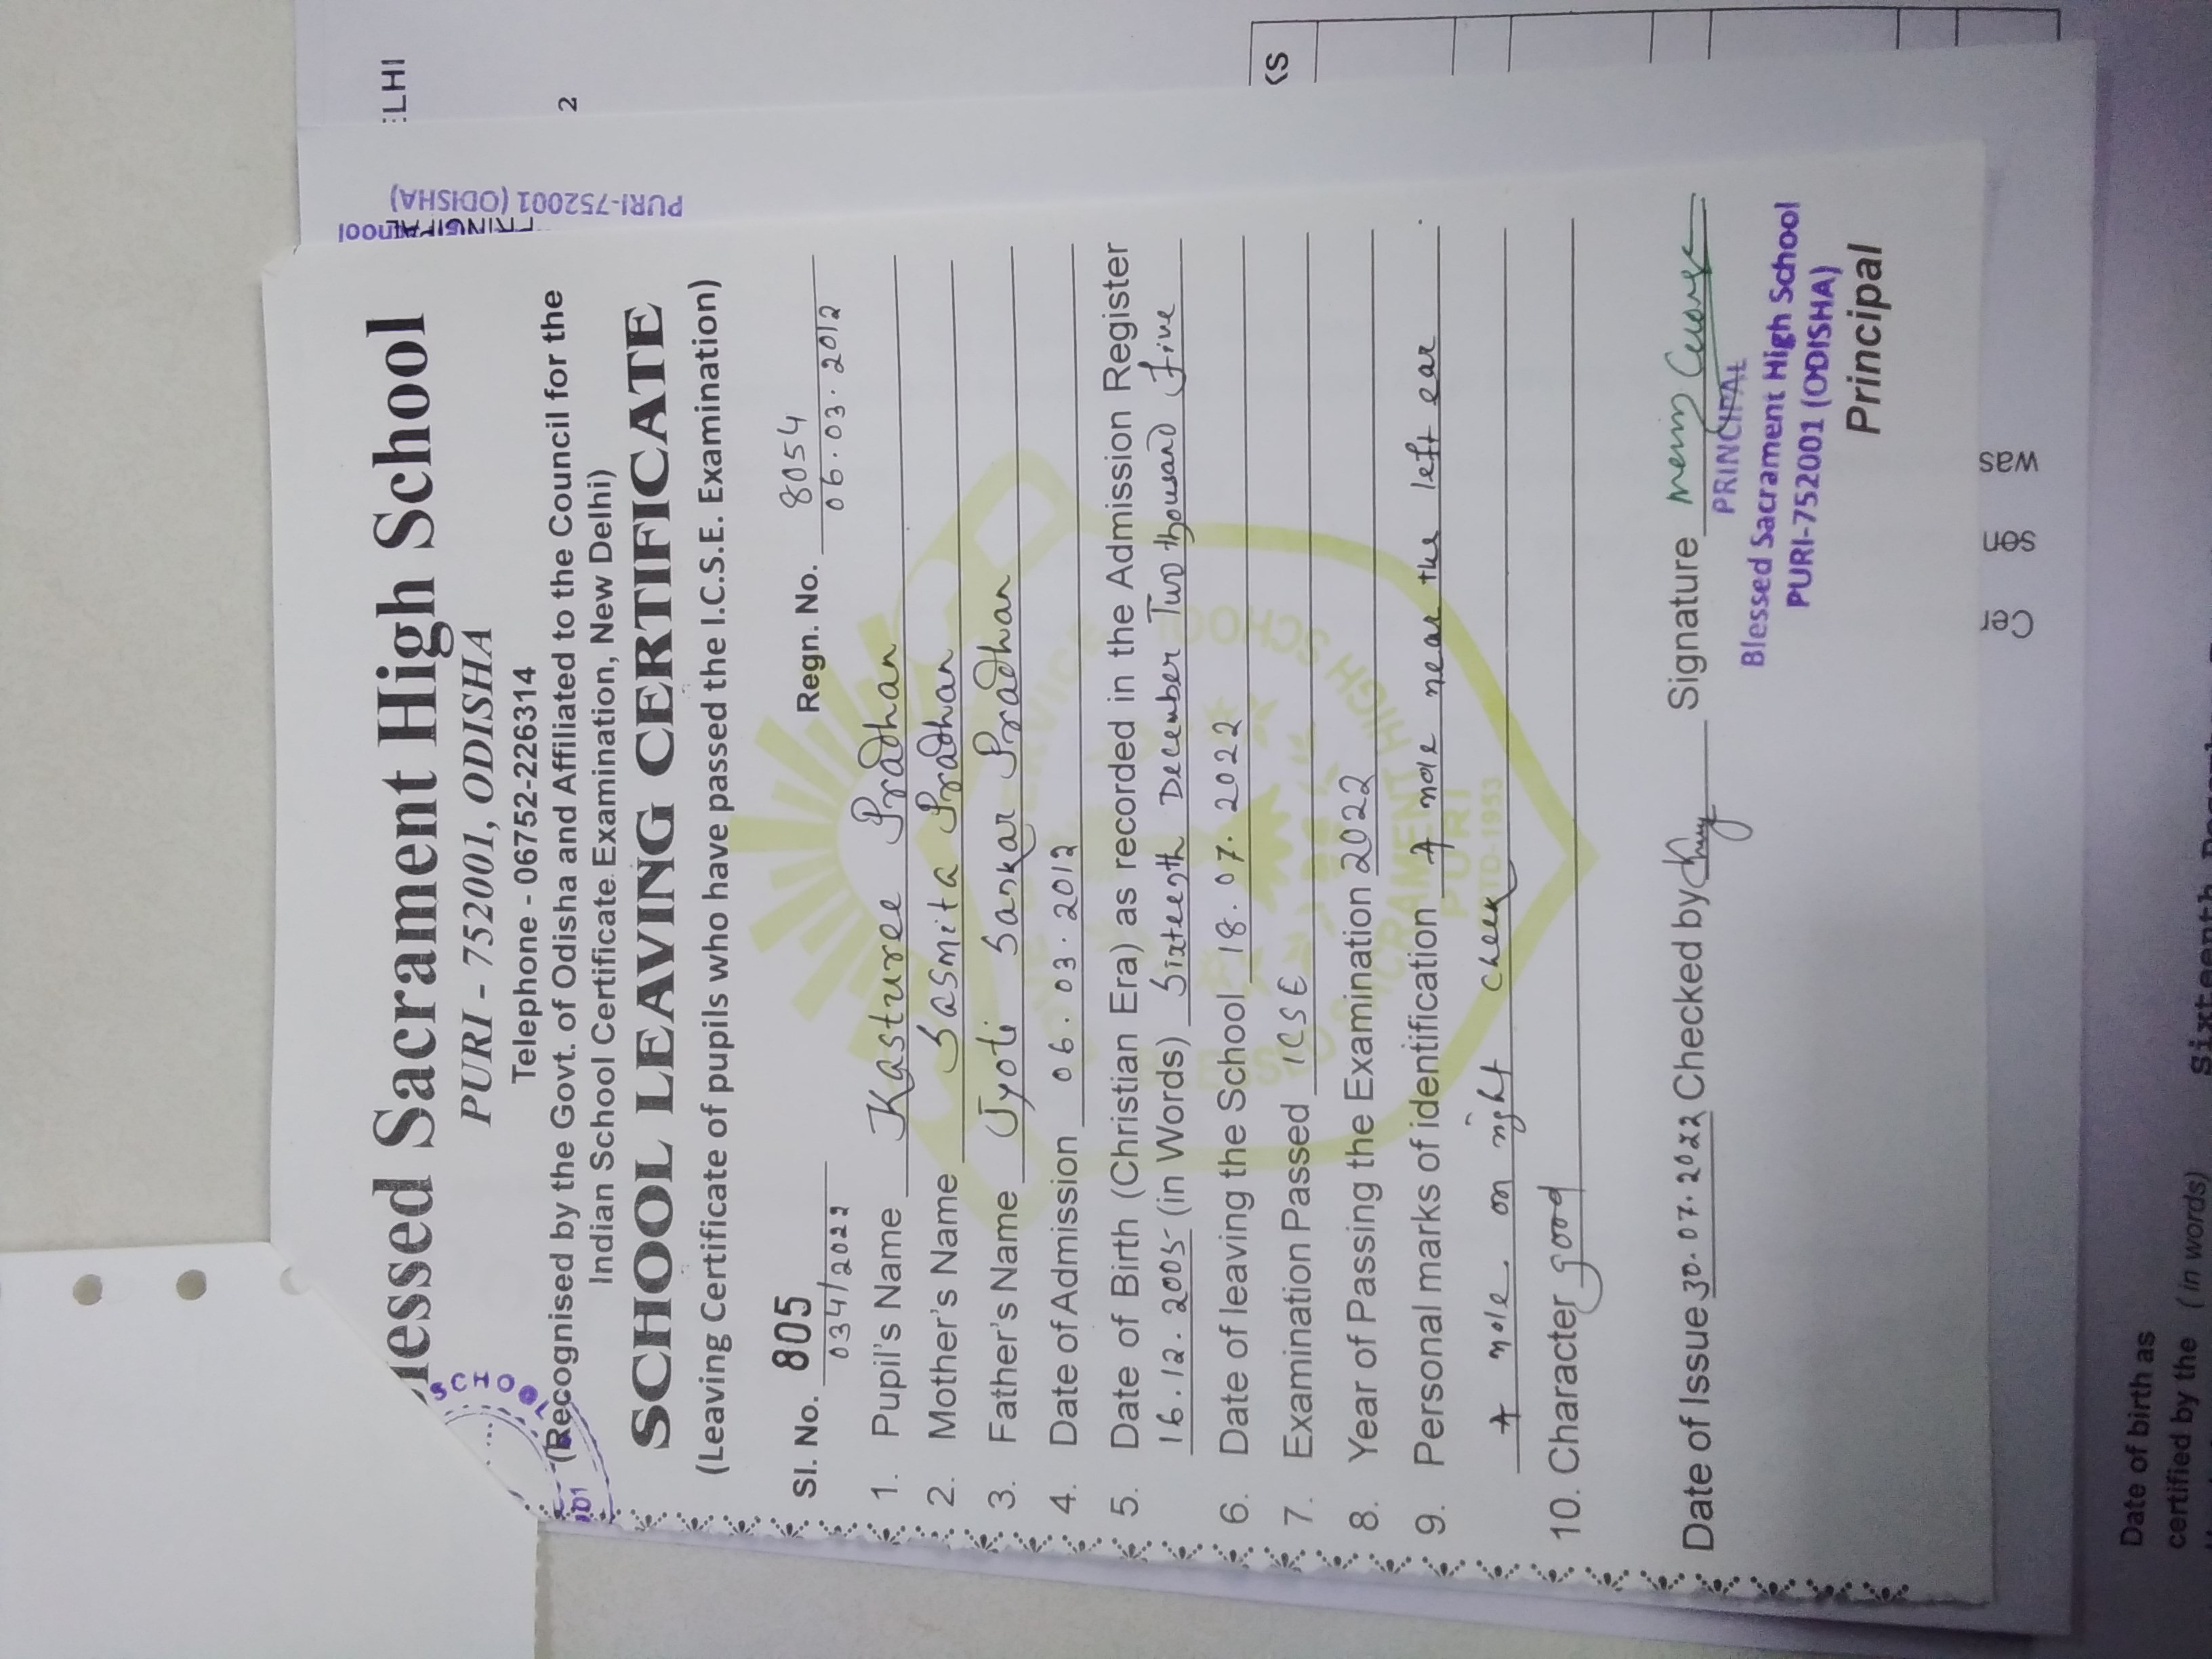 lessed Sacrament High School
PURI - 752001, ODISHA
Telephone - 06752-226314
(Recognised by the Govt. of Odisha and Affiliated to the Council for the
Indian School Certificate Examination, New Delhi)
SCHOOL LEAVING CERTIFICATE
(Leaving Certificate of pupils who have passed the I.C.S.E. Examination)
Sl. No. 805 Regn. No. 8054
034/2022 06.03.2012
1. Pupil's Name Kasturee Pradhan
2. Mother's Name Sasmita Pradhan
3. Father's Name Jyoti Sankar Pradhan
4. Date of Admission 06.03.2012
5. Date of Birth (Christian Era) as recorded in the Admission Register
16.12.2005 (in Words) Sixteenth December Two thousand five
6. Date of leaving the School 18.07.2022
7. Examination Passed ICSE
8. Year of Passing the Examination 2022
9. Personal marks of identification A mole near the left ear.
A mole on right cheek
10. Character good
Date of Issue 30.07.2022 Checked by Signature
PRINCIPAL
Blessed Sacrament High School
PURI-752001 (ODISHA)
Principal
SCHOOL
BLESSED SACRAMENT HIGH SCHOOL
PURI
ESTD-1953
SERVICE
PURI-752001 (ODISHA)
PRINCIPAL
ELHI
2
KS
was
sen
Cer
Date of birth as
certified by the (in words)